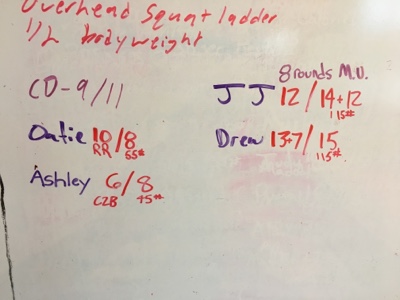 Overhead Squat ladder
1/2 bodyweight
8 rounds M.U.
CD - 9/11
JJ 12/14+12
115#
Oatie 10/8
RR 55#
Drew 13+7/15
115#
Ashley 6/8
C2B 45#